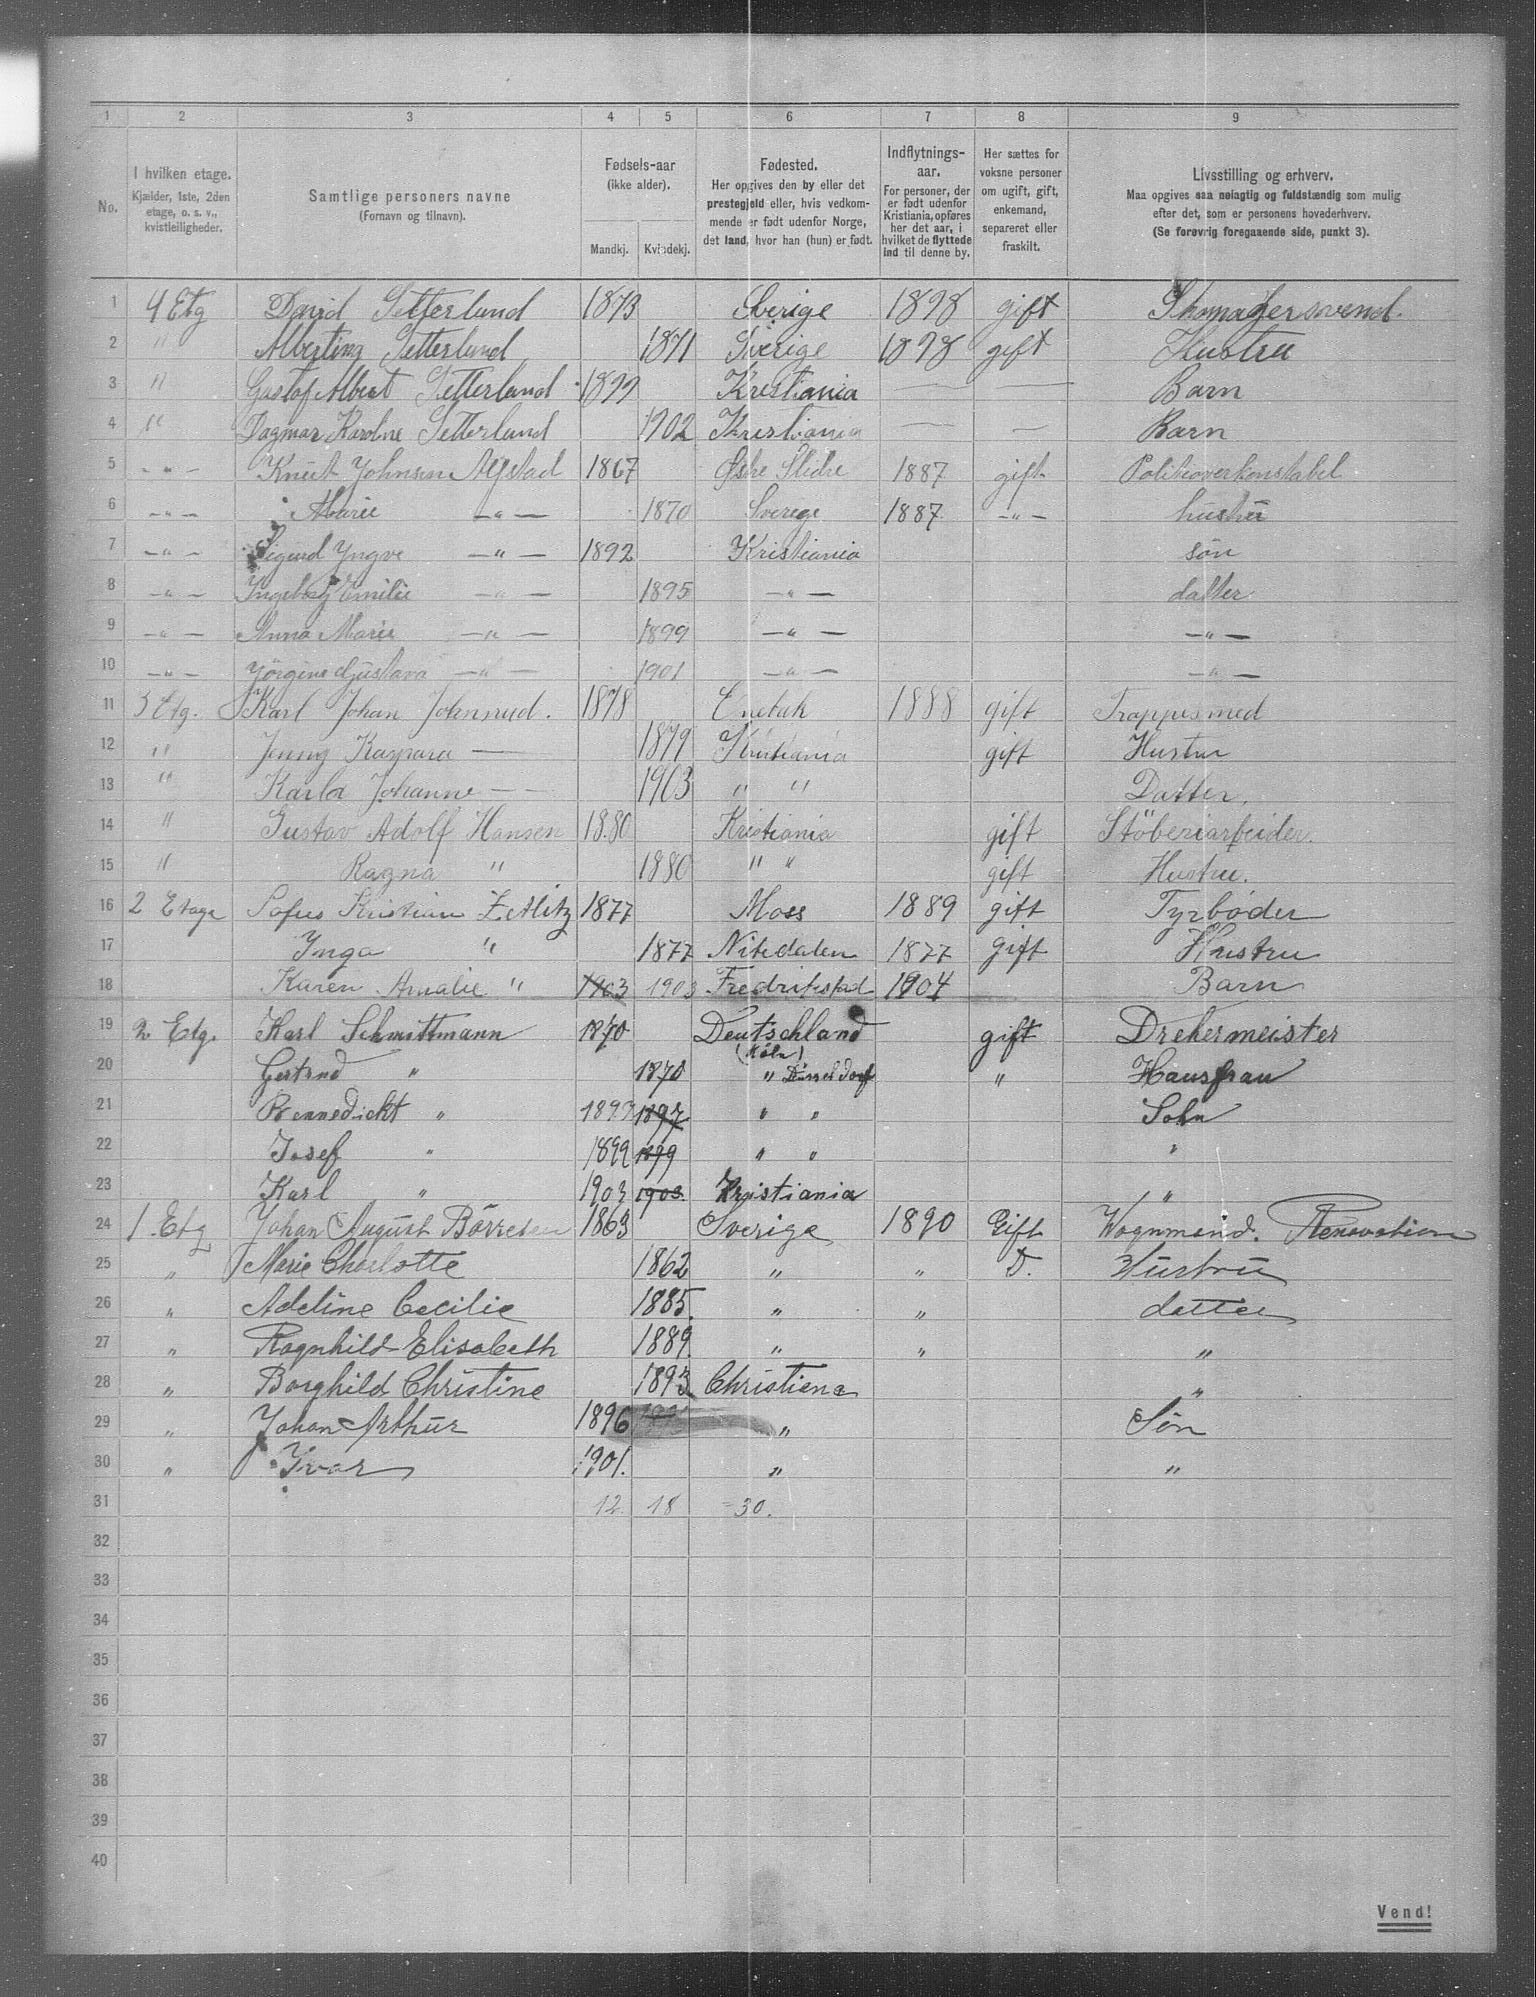 1 2 3 4 5 6 7 8 9
No. I hvilken etage. Kjælder, 1ste, 2den etage, o. s. v., kvistleiligheder. Samtlige personers navne (Fornavn og tilnavn). Fødsels-aar (ikke alder). Mandkj. Kvindekj. Fødested. Her opgives den by eller det prestegjeld eller, hvis vedkommende er født udenfor Norge, det land, hvor han (hun) er født. Indflytnings-aar. For personer, der er født udenfor Kristiania, opføres her det aar, i hvilket de flyttede ind til denne by. Her sættes for voksne personer om ugift, gift, enkemand, separeret eller fraskilt. Livsstilling og erhverv. Maa opgives saa nøiagtig og fuldstændig som mulig efter det, som er personens hovederhverv. (Se forøvrig foregaaende side, punkt 3).
1 4 Etg David Setterlund 1873 Sverige 1898 gift Skomagersvend.
2 " Albertina Setterlund 1871 Sverige 1898 gift Hustru
3 " Gustaf Albert Setterlund 1899 Kristiania — — Barn
4 " Dagmar Karoline Setterlund 1902 Kristiania — — Barn
5 -"- Knut Johnsen Alfstad 1867 Østre Slidre 1887 gift Politioverkonstabel
6 -"- Marie -"- 1870 Sverige 1887 -"- hustru
7 -"- Sigurd Yngve -"- 1892 Kristiania søn
8 -"- Ingeborg Emilie -"- 1895 -"- datter
9 -"- Anna Marie -"- 1899 -"- -"-
10 -"- Jörgine Gustava -"- 1901 -"- -"-
11 3 Etg. Karl Johan Johnsrud. 1878 Enebak 1888 gift Trappesmed
12 " Jenny Kaspara — 1879 Kristiania gift Hustru
13 " Karla Johanne — 1903 " " Datter.
14 " Gustav Adolf Hansen 1880 Kristiania gift Stöberiarbeider.
15 " Ragna " 1880 " " gift Hustru.
16 2 Etage Sofus Kristian Zetlitz 1877 Moss 1889 gift Fyrbøder
17 Inga " 1877 Nitedalen 1877 gift Hustru
18 Karen Amalie " 1903 1903 Fredrikstad 1904 Barn
19 2 Etg. Karl Schmittmann 1870 Deutschland (Köln) gift Drehermeister
20 Gertrud " 1870 " Düsseldorf " Hausfrau
21 Bennedickt " 1897 1897 " " Sohn
22 Josef " 1899 1899 " " "
23 Karl " 1903 1903. Kristiania "
24 1 Etg Johan August Börresen 1863 Sverige 1890 Gift Vognmand. Renovation
25 " Marie Charlotte 1862 " " D. Hustru
26 " Adeline Cecilie 1885. " " datter
27 " Ragnhild Elisabeth 1889. " " "
28 " Borghild Christine 1893 Christiana "
29 " Johan Arthur 1896 " Søn
30 " Ivar 1901. " "
31 12. 18 = 30.
32
33
34
35
36
37
38
39
40
Vend!